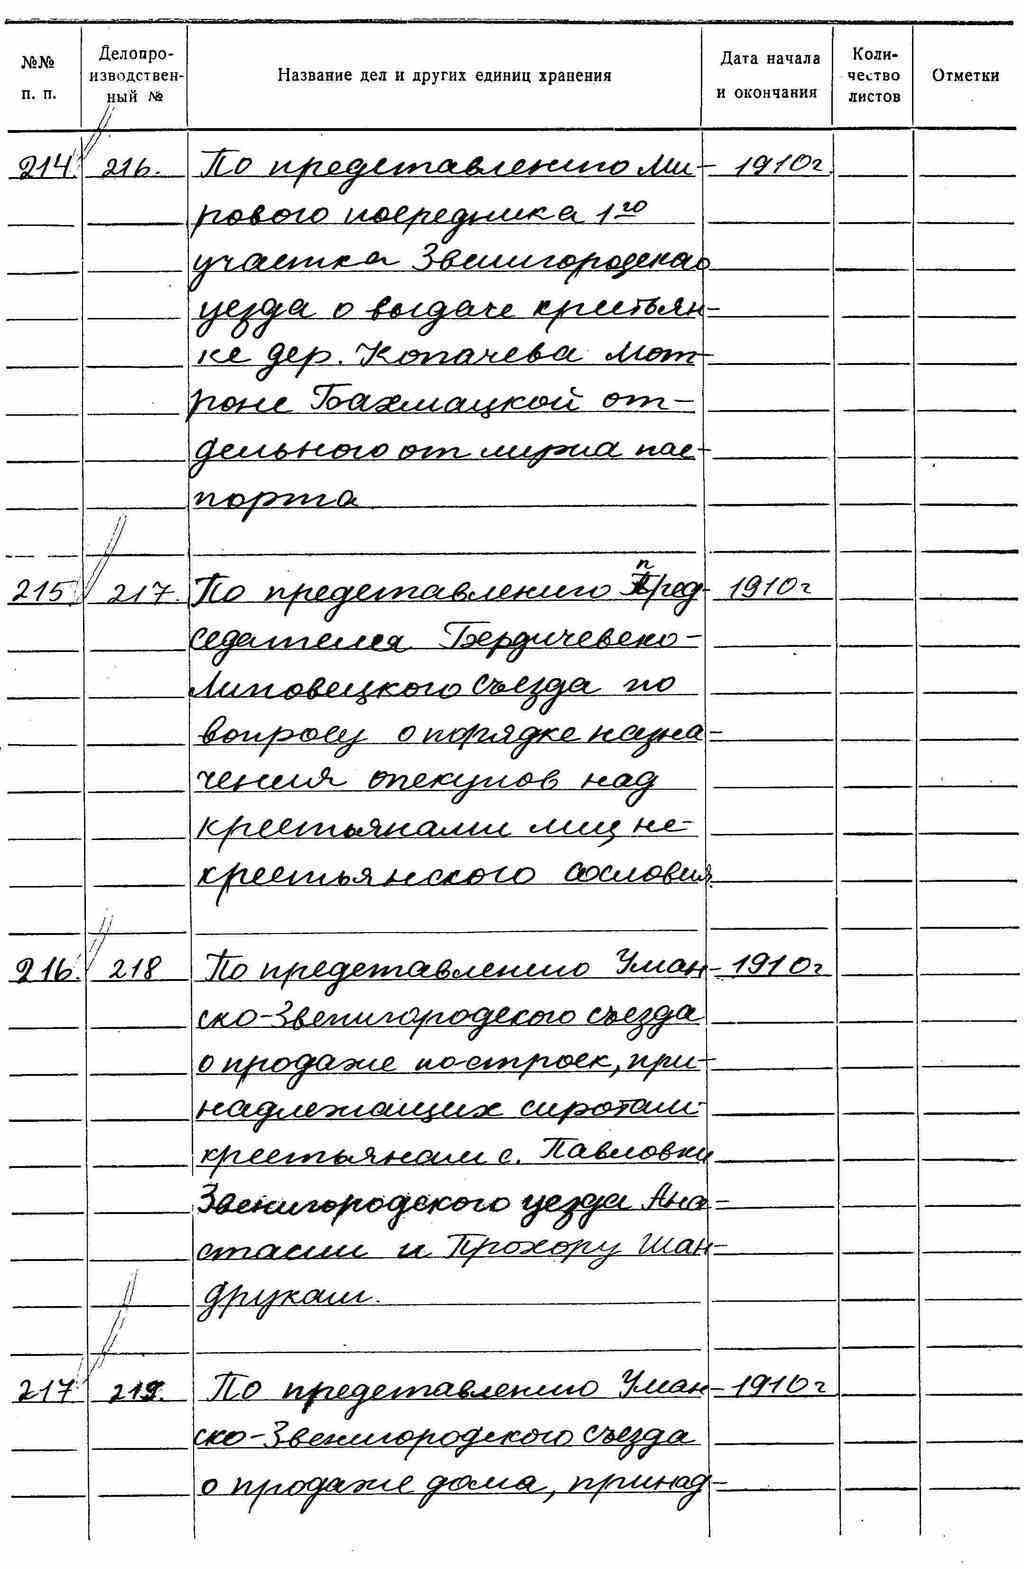 №№ п. п. Делопроизводственный № Название дел и других единиц хранения Дата начала и окончания Количество листов Отметки
214. 216. По представлению Ми- 1910г.
рового посредника 1го
участка Звенигородского
уезда о выдаче крестьян-
ке дер. Копачева Мот-
роне Бахмацкой от-
дельного от мужа пас-
порта
215. 217. По представлению Пред- 1910г
седателя Бердичевско-
Липовецкого съезда по
вопросу о порядке назна-
чения опекунов над
крестьянами лиц не-
крестьянского сословия
216. 218 По представлению Уман- 1910г
ско-Звенигородского съезда
о продаже построек, при-
надлежащих сиротам-
крестьянам с. Павловки
Звенигородского уезда Ана-
стасии и Прохору Шан-
друкам.
217 219. По представлению Уман- 1910г
ско-Звенигородского съезда
о продаже дома, принад-